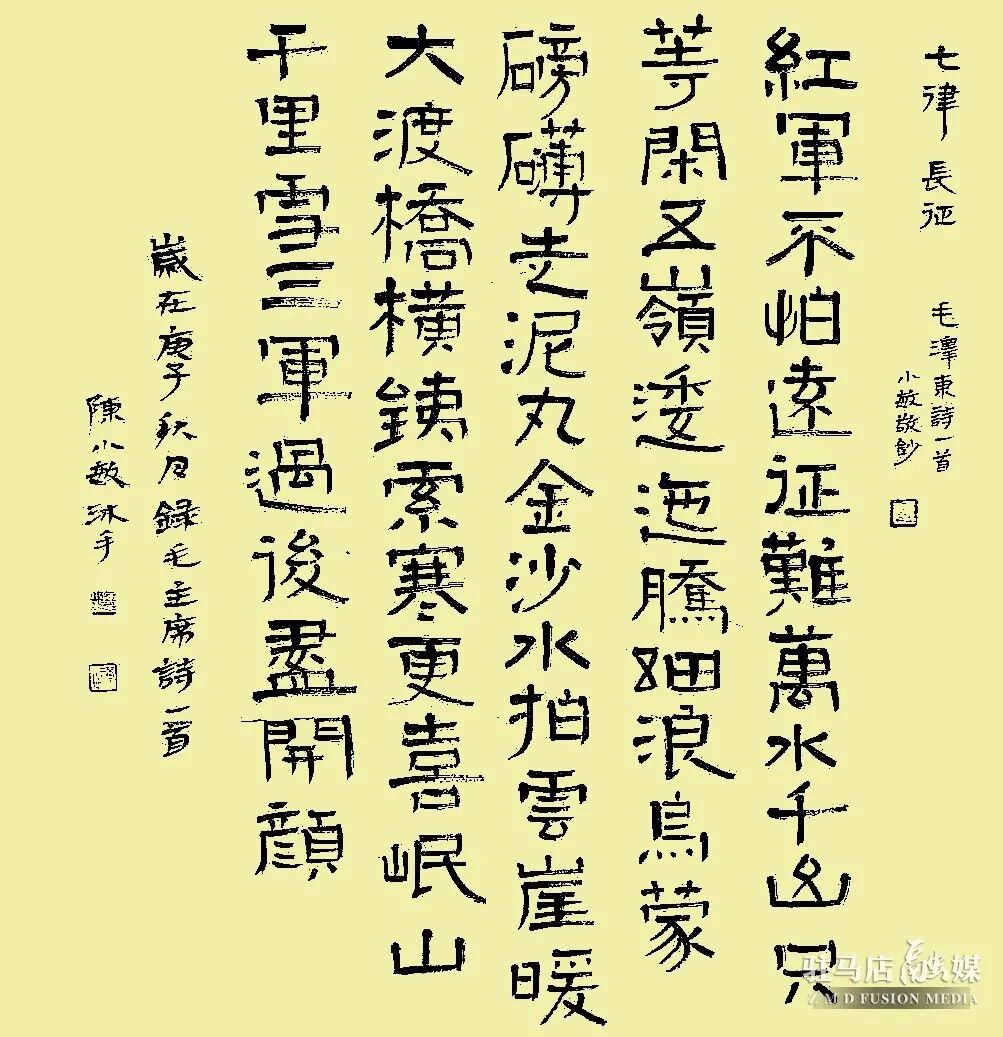 七律 長征 毛澤東詩一首
小敏敬鈔
紅軍不怕遠征難萬水千山只
等閑五嶺逶迤騰細浪烏蒙
磅礴走泥丸金沙水拍雲崖暖
大渡橋橫銕索寒更喜岷山
千里雪三軍過後盡開顏
歲在庚子秋月錄毛主席詩一首
陳小敏沐手
驻马店融媒
ZMD FUSION MEDIA